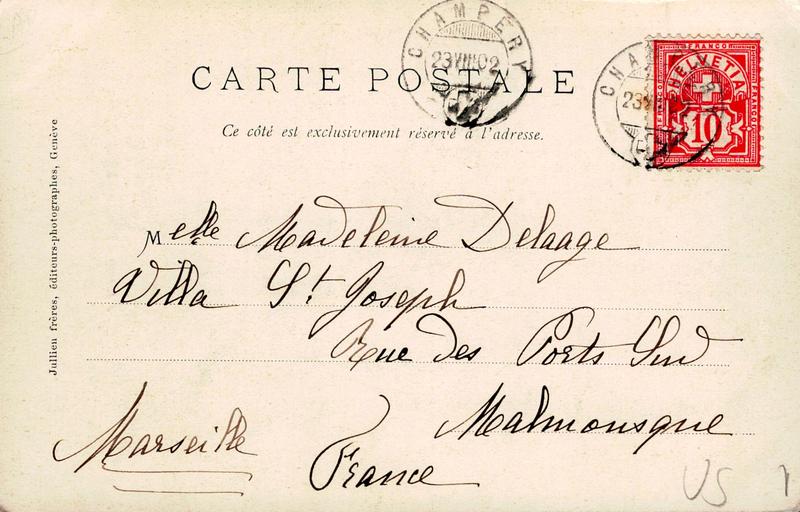 CHAMPÉRY
23 VIII 02
CHAMPÉRY
23 VIII
FRANCO
HELVETIA
FRANCO
FRANCO
10
CARTE POSTALE
Ce côté est exclusivement réservé à l'adresse.
Melle Madeleine Delaage
Villa St Joseph
Rue des Ports Sud
Malmousque
Marseille
France
Jullien frères, éditeurs-photographes, Genève
US